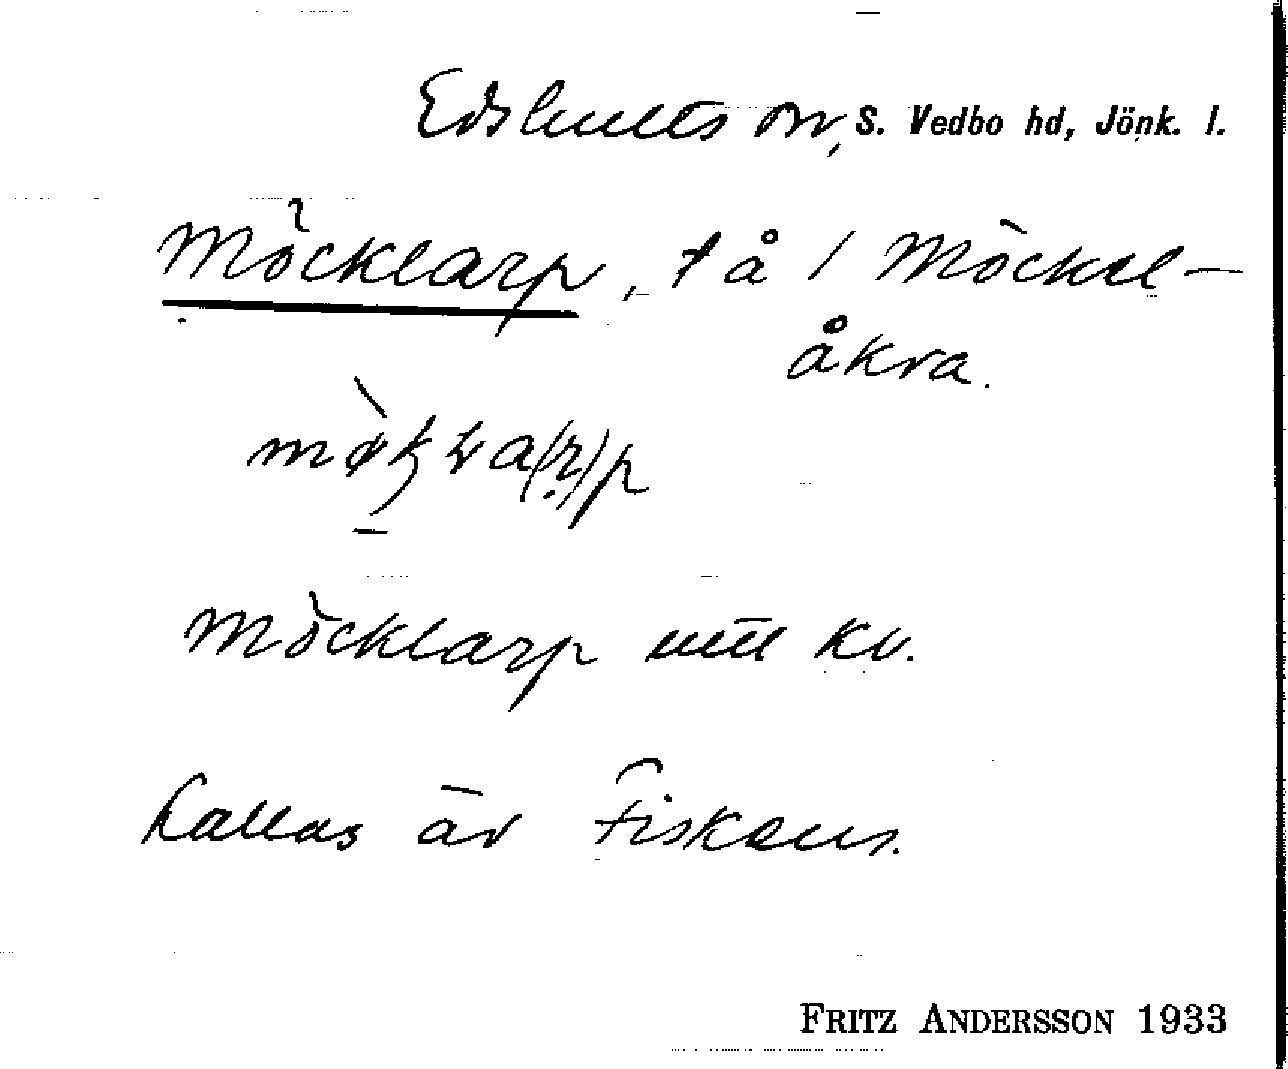 Edshults sn, S. Vedbo hd, Jönk. l.
Möcklarp, tå / Möckel-
åkra.
Möcklarp utt kv.
kallas äv Fiskens.
FRITZ ANDERSSON 1933